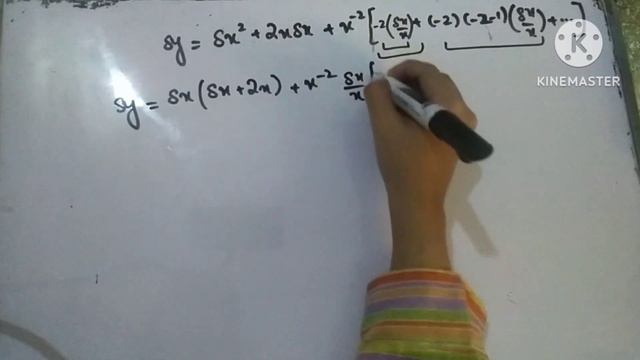 δy = δx² + 2xδx + x⁻² [-2(δx/x) + (-2)(-2-1)(δx/x) + ...]
δy = δx (δx + 2x) + x⁻² δx/x [
KINEMASTER